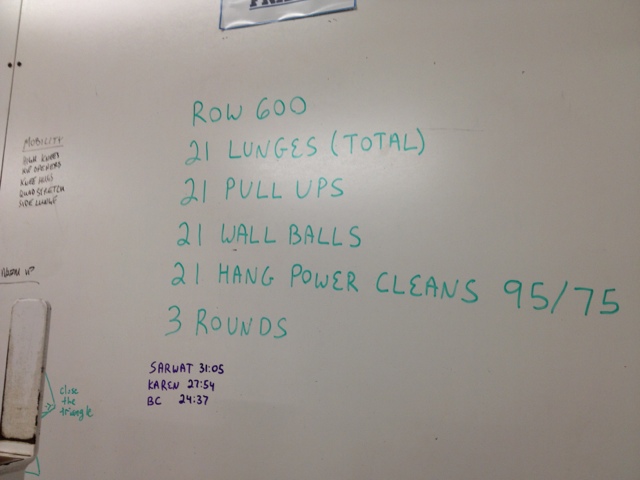 ROW 600
21 LUNGES (TOTAL)
21 PULL UPS
21 WALL BALLS
21 HANG POWER CLEANS 95/75
3 ROUNDS
SARWAT 31:05
KAREN 27:54
BC 24:37
MOBILITY
HIGH KNEES
KNEE HUGS
QUAD STRETCH
SIDE LUNGE
WARM UP
close
the
triangle